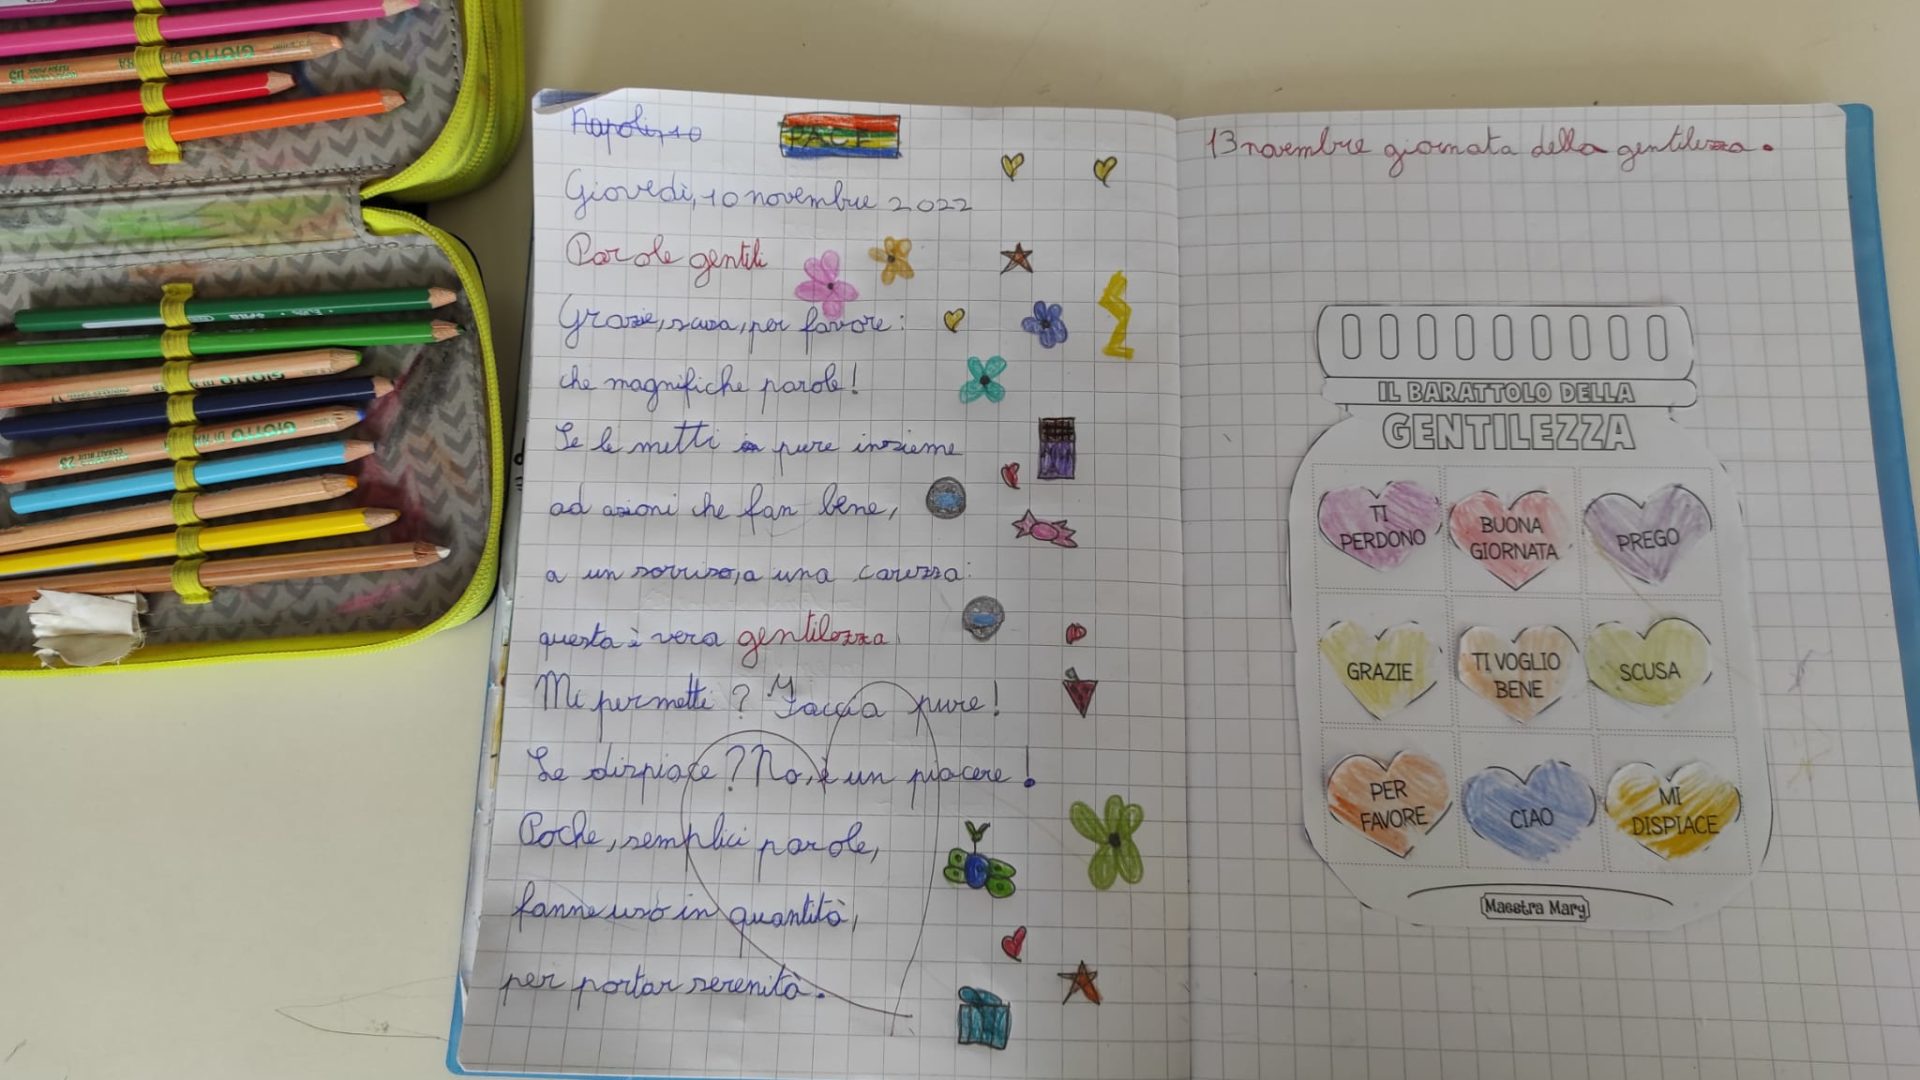 Napoli, 10
PACE
Giovedì, 10 novembre 2022
Parole gentili
Grazie, scusa, per favore:
che magnifiche parole!
Se le metti pure insieme
ad azioni che fan bene,
a un sorriso, a una carezza:
questa è vera gentilezza
Mi permetti? Faccia pure!
Le dispiace? No, è un piacere!
Poche, semplici parole,
fanne uso in quantità,
per portar serenità.
13 novembre giornata della gentilezza.
IL BARATTOLO DELLA
GENTILEZZA
TI
PERDONO
BUONA
GIORNATA
PREGO
GRAZIE
TI VOGLIO
BENE
SCUSA
PER
FAVORE
CIAO
MI
DISPIACE
Maestra Mary
GIOTTO
GIOTTO
GIOTTO